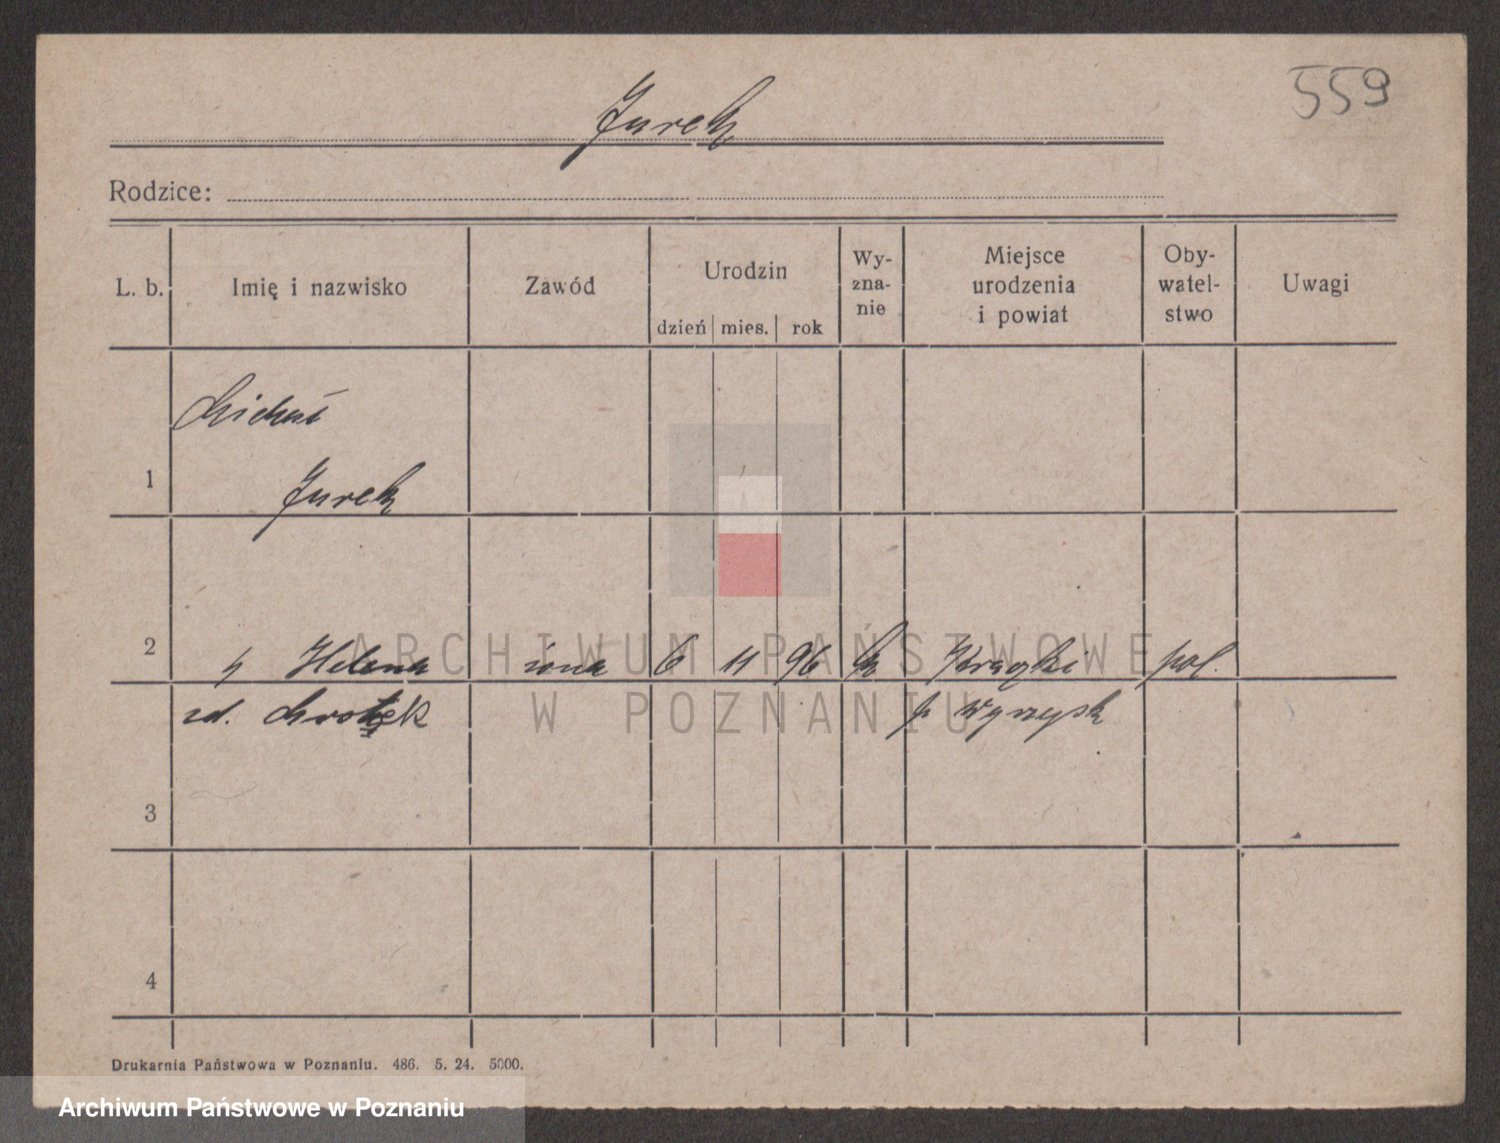 559
Jurek
Rodzice:
L. b.
Imię i nazwisko
Zawód
Urodzin
dzień mies. rok
Wy-
zna-
nie
Miejsce
urodzenia
i powiat
Oby-
watel-
stwo
Uwagi
1
Jurek
2
Helena żona 6 11 96 pol.
zd.
p. Wyrzysk
3
4
ARCHIWUM PAŃSTWOWE
W POZNANIU
Drukarnia Państwowa w Poznaniu. 486. 5. 24. 5000.
Archiwum Państwowe w Poznaniu